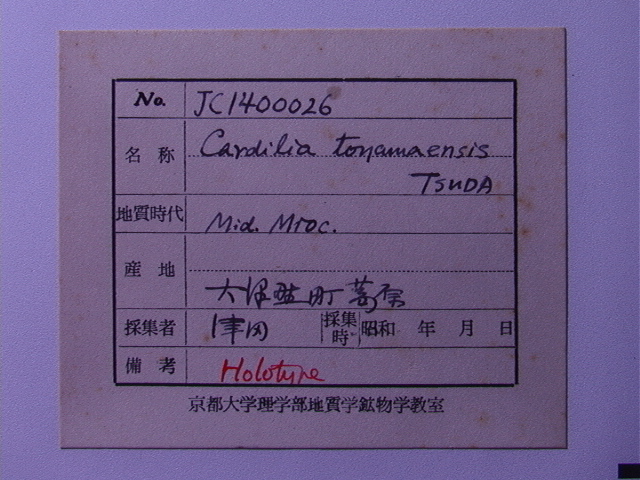 No. JC1400026
名称 Cardilia toyamaensis
TSUDA
地質時代 Mid. Mioc.
産地
大沢野町葛原
採集者 津田 採集時 昭和 年 月 日
備考 Holotype
京都大学理学部地質学鉱物学教室